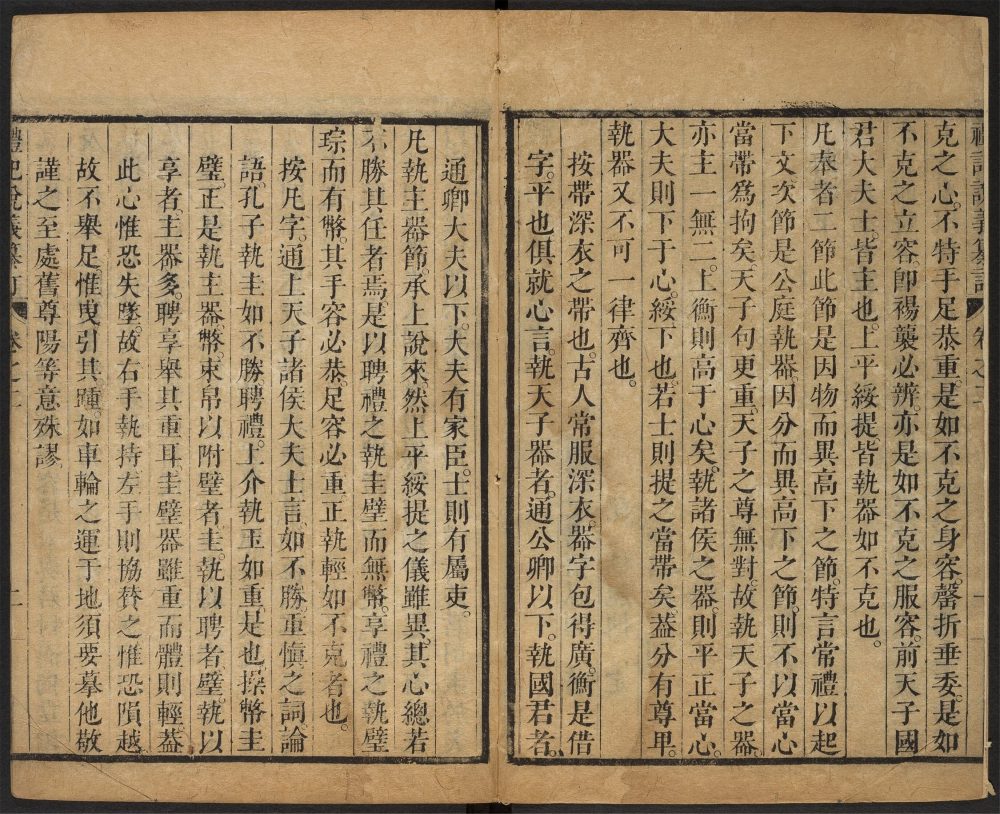 禮記說義纂訂 卷之二 一
克之心。不特手足恭重。是如不克之身容。罄折垂委。是如
不克之立容。卽裼襲必辨。亦是如不克之服容。前天子國
君大夫士。皆主也。上平綏提皆執器如不克也。
凡奉者二節此節是因物而異高下之節。特言常禮以起
下文次節是公庭執器因分而異高下之節。則不以當心
當帶爲拘矣天子句更重。天子之尊無對。故執天子之器
亦主一無二。上衡則高于心矣。執諸侯之器。則平正當心。
大夫則下于心。綏下也。若士則提之當帶矣。葢分有尊卑。
執器又不可一律齊也。
按帶深衣之帶也。古人常服深衣。器字包得廣。衡是借
字。平也俱就心言。執天子器者。通公卿以下。執國君者。
通卿大夫以下。大夫有家臣。士則有屬吏。
凡執主器節。承上說來。然上平綏提之儀雖異。其心總若
不勝其任者焉。是以聘禮之執圭璧而無幣。享禮之執璧
琮而有幣。其手容必恭。足容必重。正執輕如不克者也。
按凡字。通上天子諸侯大夫士言。如不勝重慎之詞。論
語。孔子執圭如不勝聘禮。上介執玉如重。是也。操幣圭
璧。正是執主器。幣。束帛以附璧者圭。執以聘者。璧。執以
享者。主器多。聘享舉其重耳圭璧器雖重而體則輕。葢
此心惟恐失墜。故右手執持左手則協賛之惟恐隕越
故不舉足。惟曳引其踵。如車輪之運于地須要摹他敬
謹之至處舊尊陽等意殊謬
禮記說義纂訂 卷之二 二